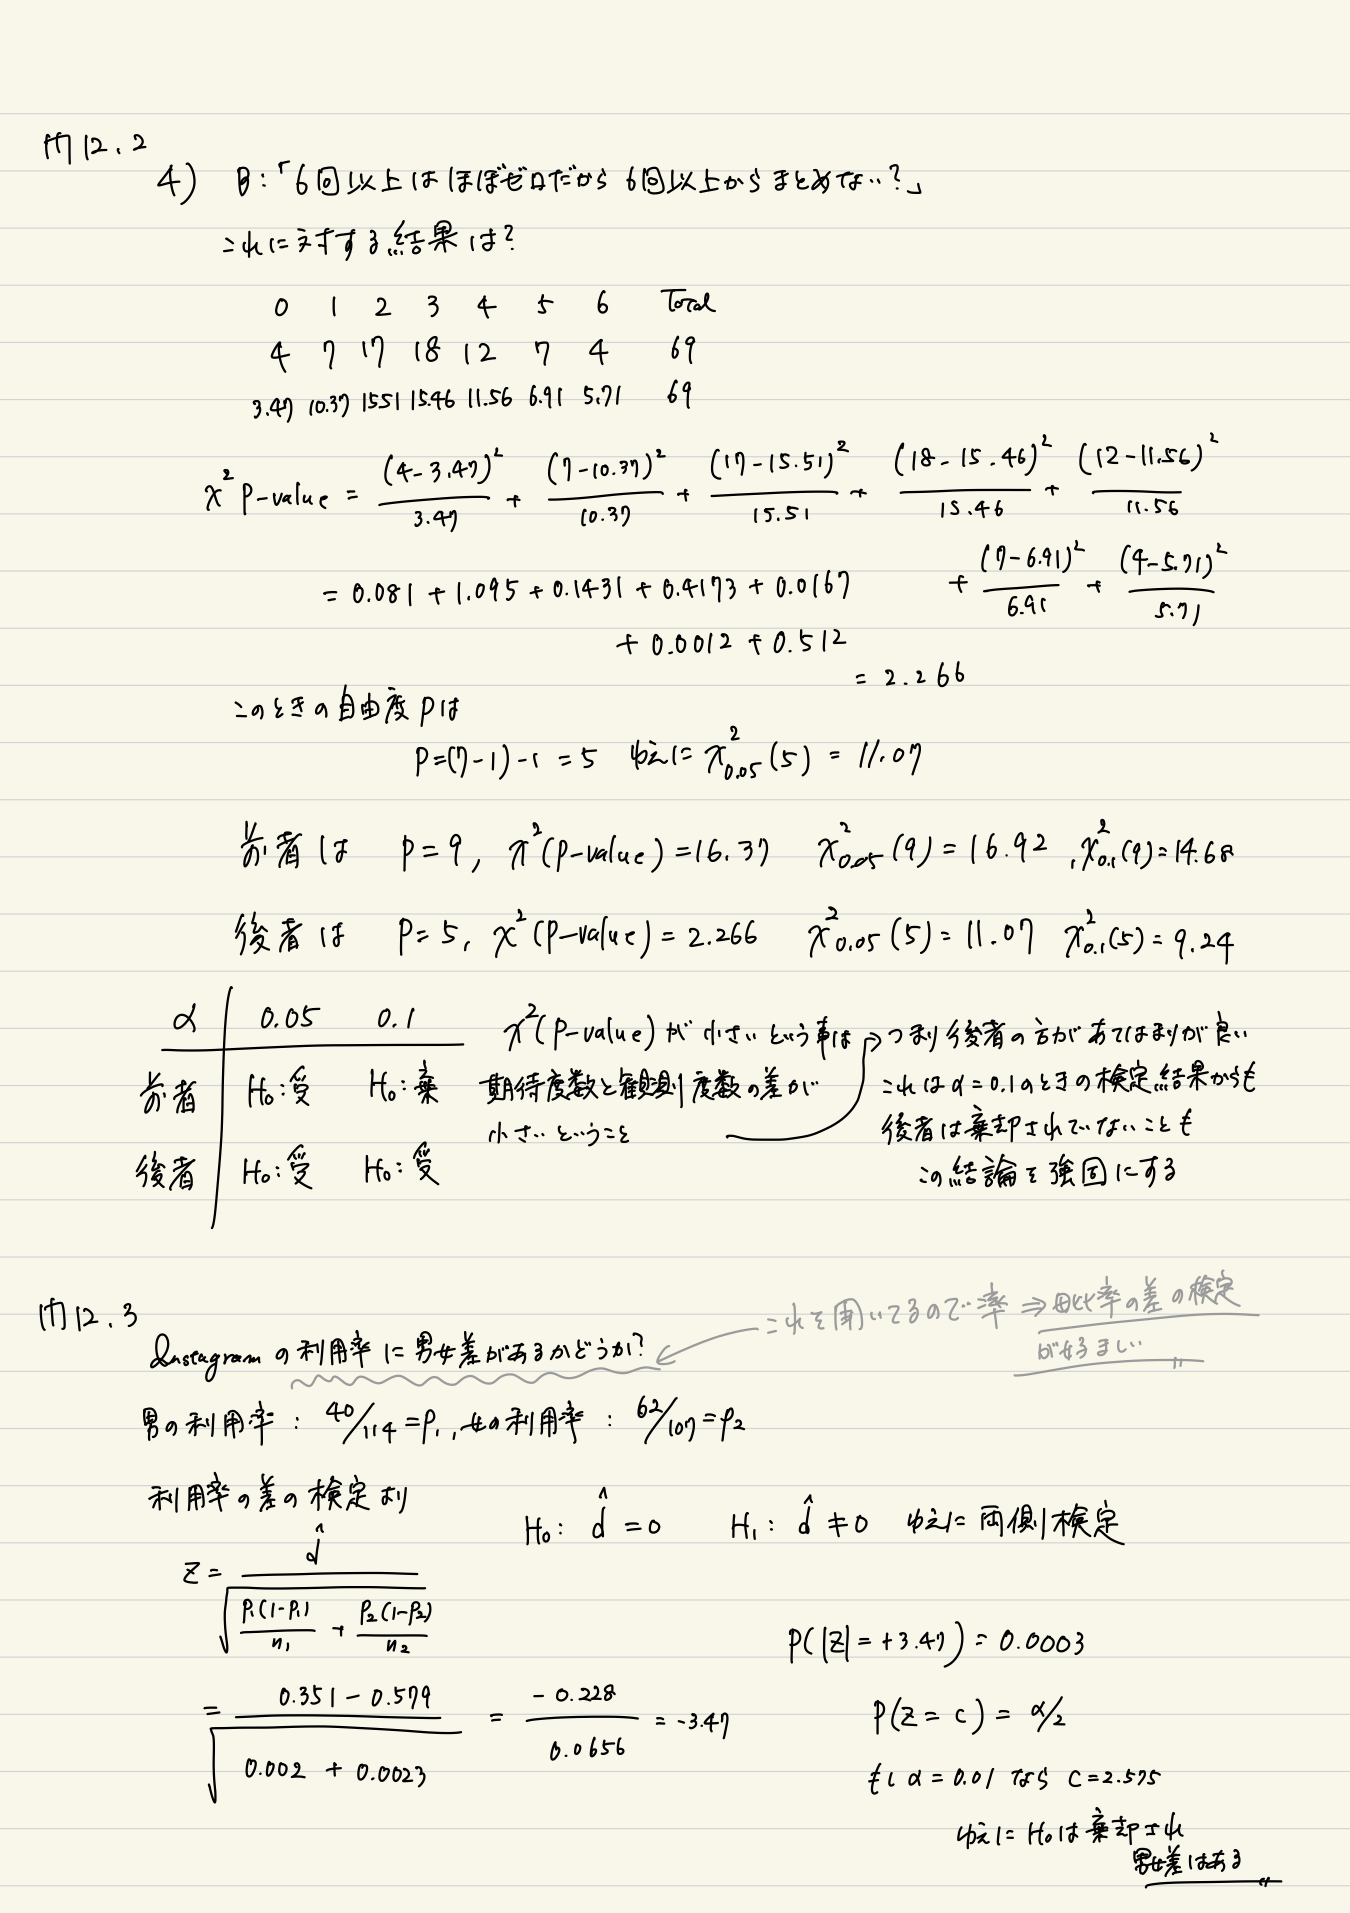 問12.2
4) B:「6回以上はほぼゼロだから 6回以上からまとめない?」
これに対する結果は?
0 1 2 3 4 5 6 Total
4 7 17 18 12 7 4 69
3.47 10.37 15.51 15.46 11.56 6.91 5.71 69
χ² P-value = (4-3.47)²/3.47 + (7-10.37)²/10.37 + (17-15.51)²/15.51 + (18-15.46)²/15.46 + (12-11.56)²/11.56
+ (7-6.91)²/6.91 + (4-5.71)²/5.71
= 0.081 + 1.095 + 0.1431 + 0.4173 + 0.0167
+ 0.0012 + 0.512
= 2.266
このときの自由度Pは
P=(7-1)-1 = 5 ゆえに χ²0.05(5) = 11.07
前者は P=9, χ²(P-value)=16.37 χ²0.05(9) = 16.92 , χ²0.1(9)=14.68
後者は P=5, χ²(P-value)=2.266 χ²0.05(5)=11.07 χ²0.1(5)=9.24
α 0.05 0.1
前者 H₀:受 H₀:棄
後者 H₀:受 H₀:受
χ²(P-value)が小さいという事は
期待度数と観測度数の差が
小さいということ
つまり後者の方があてはまりが良い
これはα=0.1のときの検定結果からも
後者は棄却されていないことも
この結論を強固にする
問12.3
これを聞いてるので率 ⇒ 母比率の差の検定
が好ましい〃
Instagramの利用率に男女差があるかどうか?
男の利用率 : 40/114=P₁, 女の利用率 : 62/107=P₂
利用率の差の検定より
H₀: d̂ = 0 H₁: d̂ ≠ 0 ゆえに両側検定
Z = d̂/√(P₁(1-P₁)/n₁ + P₂(1-P₂)/n₂)
= (0.351 - 0.579)/√(0.002 + 0.0023) = -0.228/0.0656 = -3.47
P(|Z|=+3.47) = 0.0003
P(Z=c) = α/2
もしα=0.01なら c=2.575
ゆえにH₀は棄却され
男女差はある〃